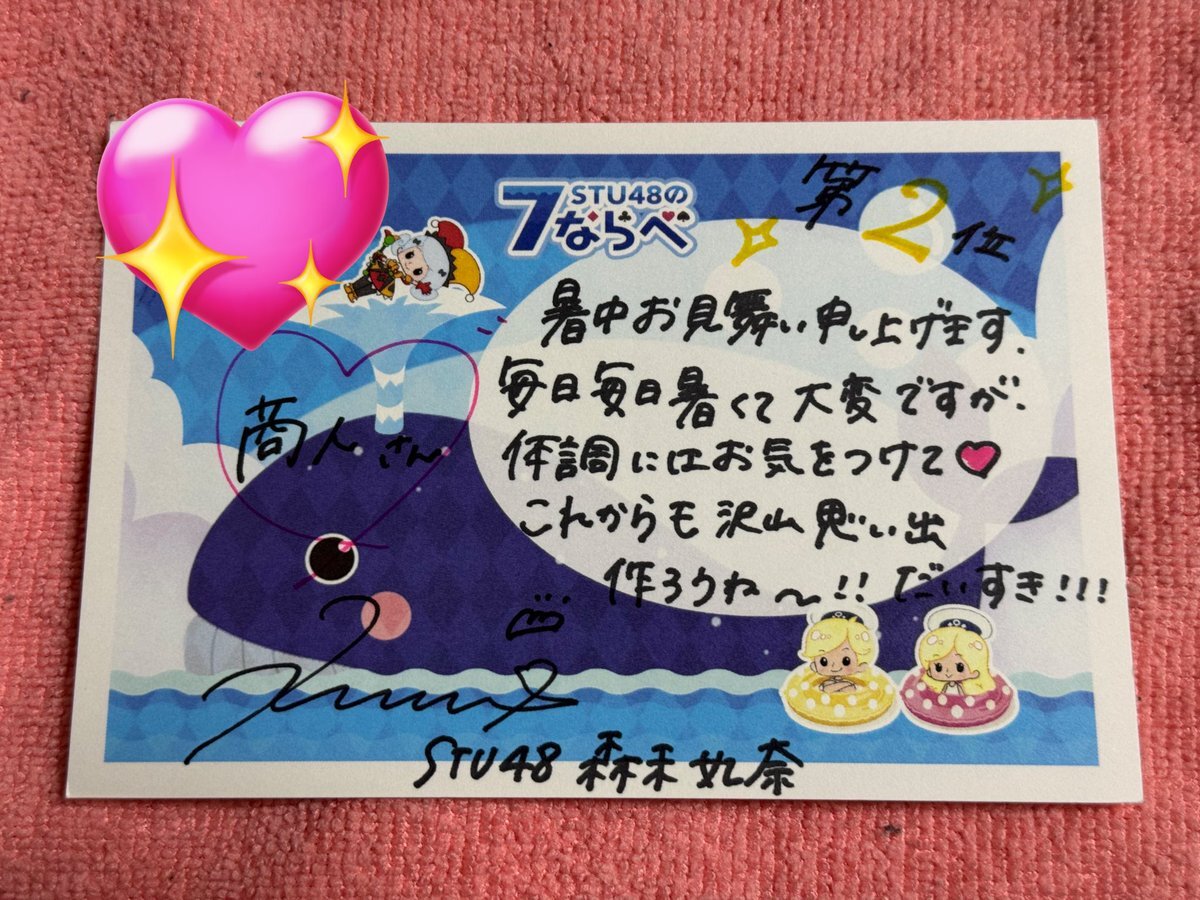 STU48の
7ならべ
第2位
暑中お見舞い申し上げます.
毎日毎日暑くて大変ですが.
体調にはお気をつけて♥
これからも沢山思い出
作ろうね〜!!だいすき!!!
商人さん
STU48 森末妃奈